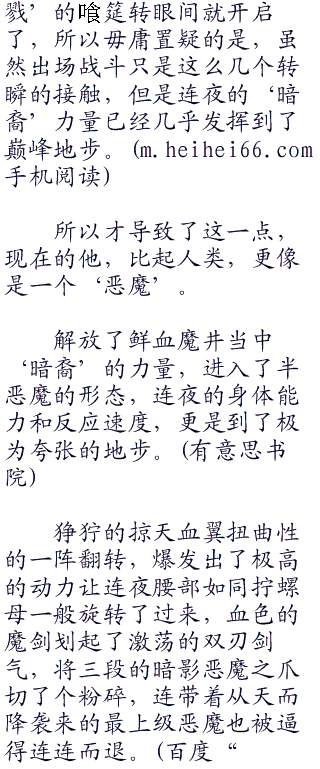 戮’的飧筵转眼间就开启
了，所以毋庸置疑的是，虽
然出场战斗只是这么几个转
瞬的接触，但是连夜的‘暗
裔’力量已经几乎发挥到了
巅峰地步。(m.heihei66.com
手机阅读)
所以才导致了这一点，
现在的他，比起人类，更像
是一个‘恶魔’。
解放了鲜血魔井当中
‘暗裔’的力量，进入了半
恶魔的形态，连夜的身体能
力和反应速度，更是到了极
为夸张的地步。(有意思书
院)
狰狞的掠天血翼扭曲性
的一阵翻转，爆发出了极高
的动力让连夜腰部如同拧螺
母一般旋转了过来，血色的
魔剑划起了激荡的双刃剑
气，将三段的暗影恶魔之爪
切了个粉碎，连带着从天而
降袭来的最上级恶魔也被逼
得连连而退。(百度“